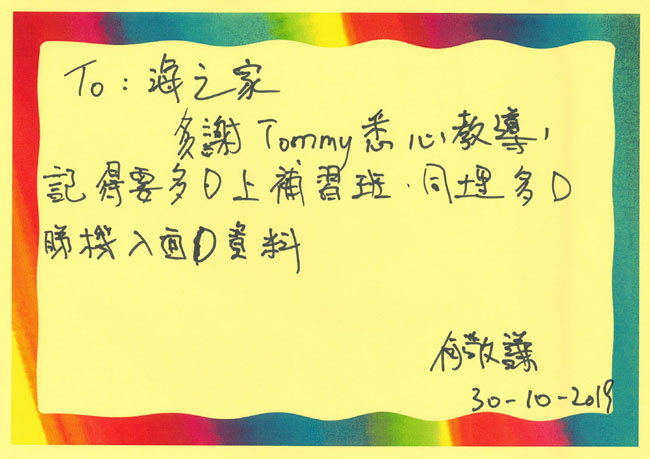 To：海之家
多謝 Tommy 悉心教導，
記得要多D上補習班．同埋多D
睇機入面D資料
何敬謙
30-10-2019